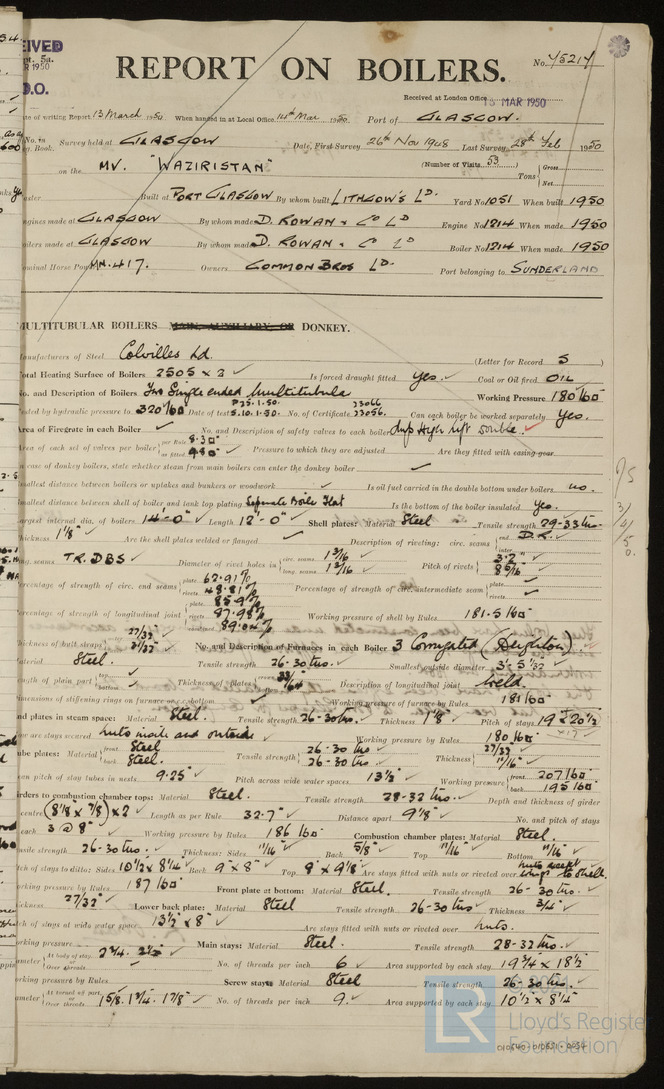 EIVED
1950
D.O.
REPORT ON BOILERS.
No. 75217
Received at London Office 15 MAR 1950
te of writing Report 13 March 1950 When handed in at Local Office 14th Mar 1950 Port of GLASGOW.
No. in Survey held at GLASGOW Date, First Survey 26th Nov 1948 Last Survey 28th Feb 1950
g. Book.
on the MV. "WAZIRISTAN" (Number of Visits 53) Tons Gross Net
aster Built at PORT GLASGOW By whom built LITHGOW'S LD. Yard No 1051 When built 1950
ngines made at GLASGOW By whom made D. ROWAN & CO LD Engine No 1214 When made 1950
oilers made at GLASGOW By whom made D. ROWAN & CO LD Boiler No 1214 When made 1950
ominal Horse Power MN. 417. Owners COMMON BROS LD. Port belonging to SUNDERLAND
MULTITUBULAR BOILERS MAIN, AUXILIARY, OR DONKEY.
anufacturers of Steel Colvilles Ld. (Letter for Record S)
otal Heating Surface of Boilers 2505 x 2 Is forced draught fitted Yes. Coal or Oil fired OIL
No. and Description of Boilers Two Single ended Multitubular Working Pressure 180 lb
ested by hydraulic pressure to 320 lb Date of test P25.1.50. S.10.1.50. No. of Certificate 23066 23056. Can each boiler be worked separately Yes.
Area of Firegrate in each Boiler No. and Description of safety valves to each boiler High lift Double.
Area of each set of valves per boiler per Rule 8.30 as fitted 9.80 Pressure to which they are adjusted Are they fitted with easing gear
n case of donkey boilers, state whether steam from main boilers can enter the donkey boiler
mallest distance between boilers or uptakes and bunkers or woodwork Is oil fuel carried in the double bottom under boilers no.
mallest distance between shell of boiler and tank top plating Separate Boiler Flat Is the bottom of the boiler insulated yes.
argest internal dia. of boilers 14'-0" Length 12'-0" Shell plates: Material Steel Tensile strength 29-33 tns
hickness 1 1/8" Are the shell plates welded or flanged Description of riveting: circ. seams end D.R. inter.
ng. seams TR.DBS Diameter of rivet holes in circ. seams 1 3/16 long. seams 1 3/16 Pitch of rivets 3.2" 8 5/16
ercentage of strength of circ. end seams plate 62.91% rivets 48.81% Percentage of strength of circ. intermediate seam plate rivets
ercentage of strength of longitudinal joint plate 85.9% rivets 87.98% combined 89.04% Working pressure of shell by Rules 181.5 lb
hickness of butt straps outer 27/32 inner 31/32 No. and Description of Furnaces in each Boiler 3 Corrugated (Deighton)
aterial Steel. Tensile strength 26-30 tns. Smallest outside diameter 3'-5 5/32
ength of plain part top bottom Thickness of plates Description of longitudinal joint Weld.
imensions of stiffening rings on furnace or c.c. bottom Working pressure of furnace by Rules 181 lb
nd plates in steam space: Material Steel. Tensile strength 26-30 tns. Thickness 1 1/8 Pitch of stays 19 x 20 1/2
ow are stays secured nuts inside and outside Working pressure by Rules 180 lb
ube plates: Material front Steel back Steel. Tensile strength 26-30 tns 26-30 tns Thickness 27/32 11/16
ean pitch of stay tubes in nests 9.25 Pitch across wide water spaces 13 1/2 Working pressure front 207 lb back 195 lb
irders to combustion chamber tops: Material Steel. Tensile strength 28-32 tns. Depth and thickness of girder
centre (8 1/8 x 7/8) x 2 Length as per Rule 32.7" Distance apart 9 1/8" No. and pitch of stays
each 3 @ 8" Working pressure by Rules 186 lb Combustion chamber plates: Material Steel.
ensile strength 26-30 tns. Thickness: Sides 11/16 Back 5/8" Top 11/16 Bottom 11/16
tch of stays to ditto: Sides 10 1/2 x 8 1/4 Back 9" x 8" Top 8" x 9 1/8 Are stays fitted with nuts or riveted over nuts except to shell.
orking pressure by Rules 187 lb Front plate at bottom: Material Steel. Tensile strength 26-30 tns.
ickness 27/32 Lower back plate: Material Steel Tensile strength 26-30 tns Thickness 3/4
tch of stays at wide water space 13 1/2 x 8" Are stays fitted with nuts or riveted over nuts.
orking pressure Main stays: Material Steel. Tensile strength 28-32 tns.
ameter At body of stay, or Over threads 2 3/4. 2 1/2 No. of threads per inch 6 Area supported by each stay 19 3/4 x 18 1/2
orking pressure by Rules Screw stays: Material Steel Tensile strength 26-30 tns.
ameter At turned off part, or Over threads 1 5/8. 1 3/4. 1 7/8 No. of threads per inch 9. Area supported by each stay 10 1/2 x 8 1/4
LR Lloyd's Register
Foundation
010840-010851-0054